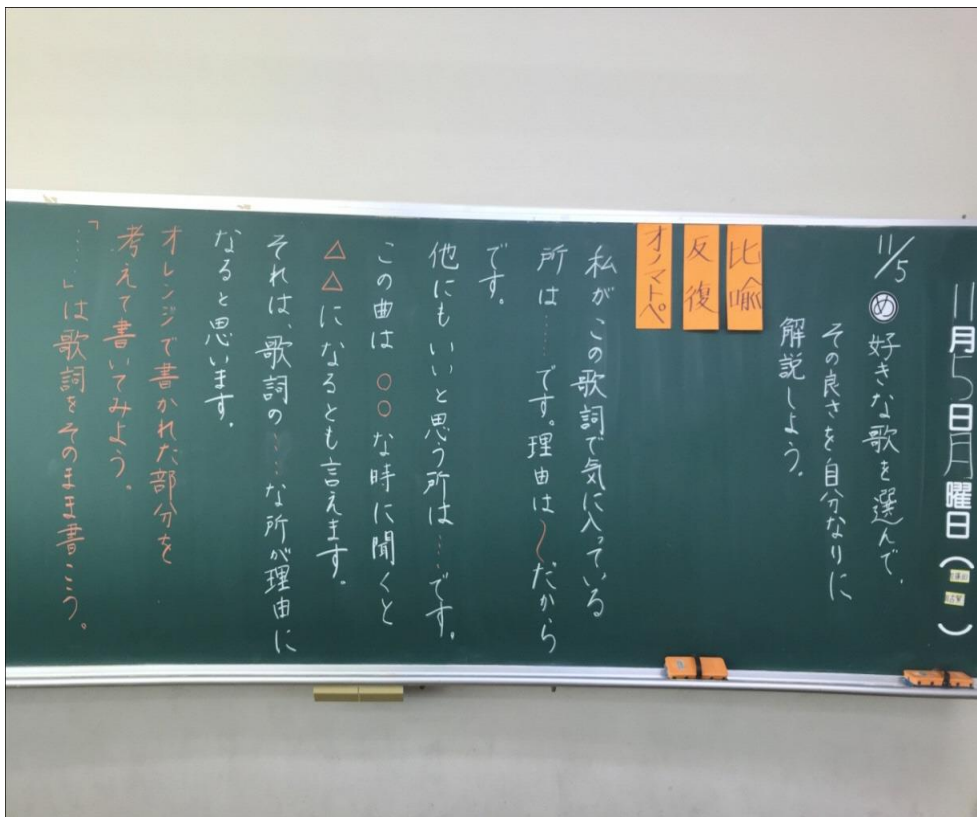 11月5日月曜日( )
11/5
め 好きな歌を選んで、
その良さを自分なりに
解説しよう。
比喩
反復
オノマトペ
私がこの歌詞で気に入っている
所は……です。理由は〜だから
です。
他にもいいと思う所は……です。
この曲は○○な時に聞くと
△△になるとも言えます。
それは、歌詞の……な所が理由に
なると思います。
オレンジで書かれた部分を
考えて書いてみよう。
「……」は歌詞をそのまま書こう。